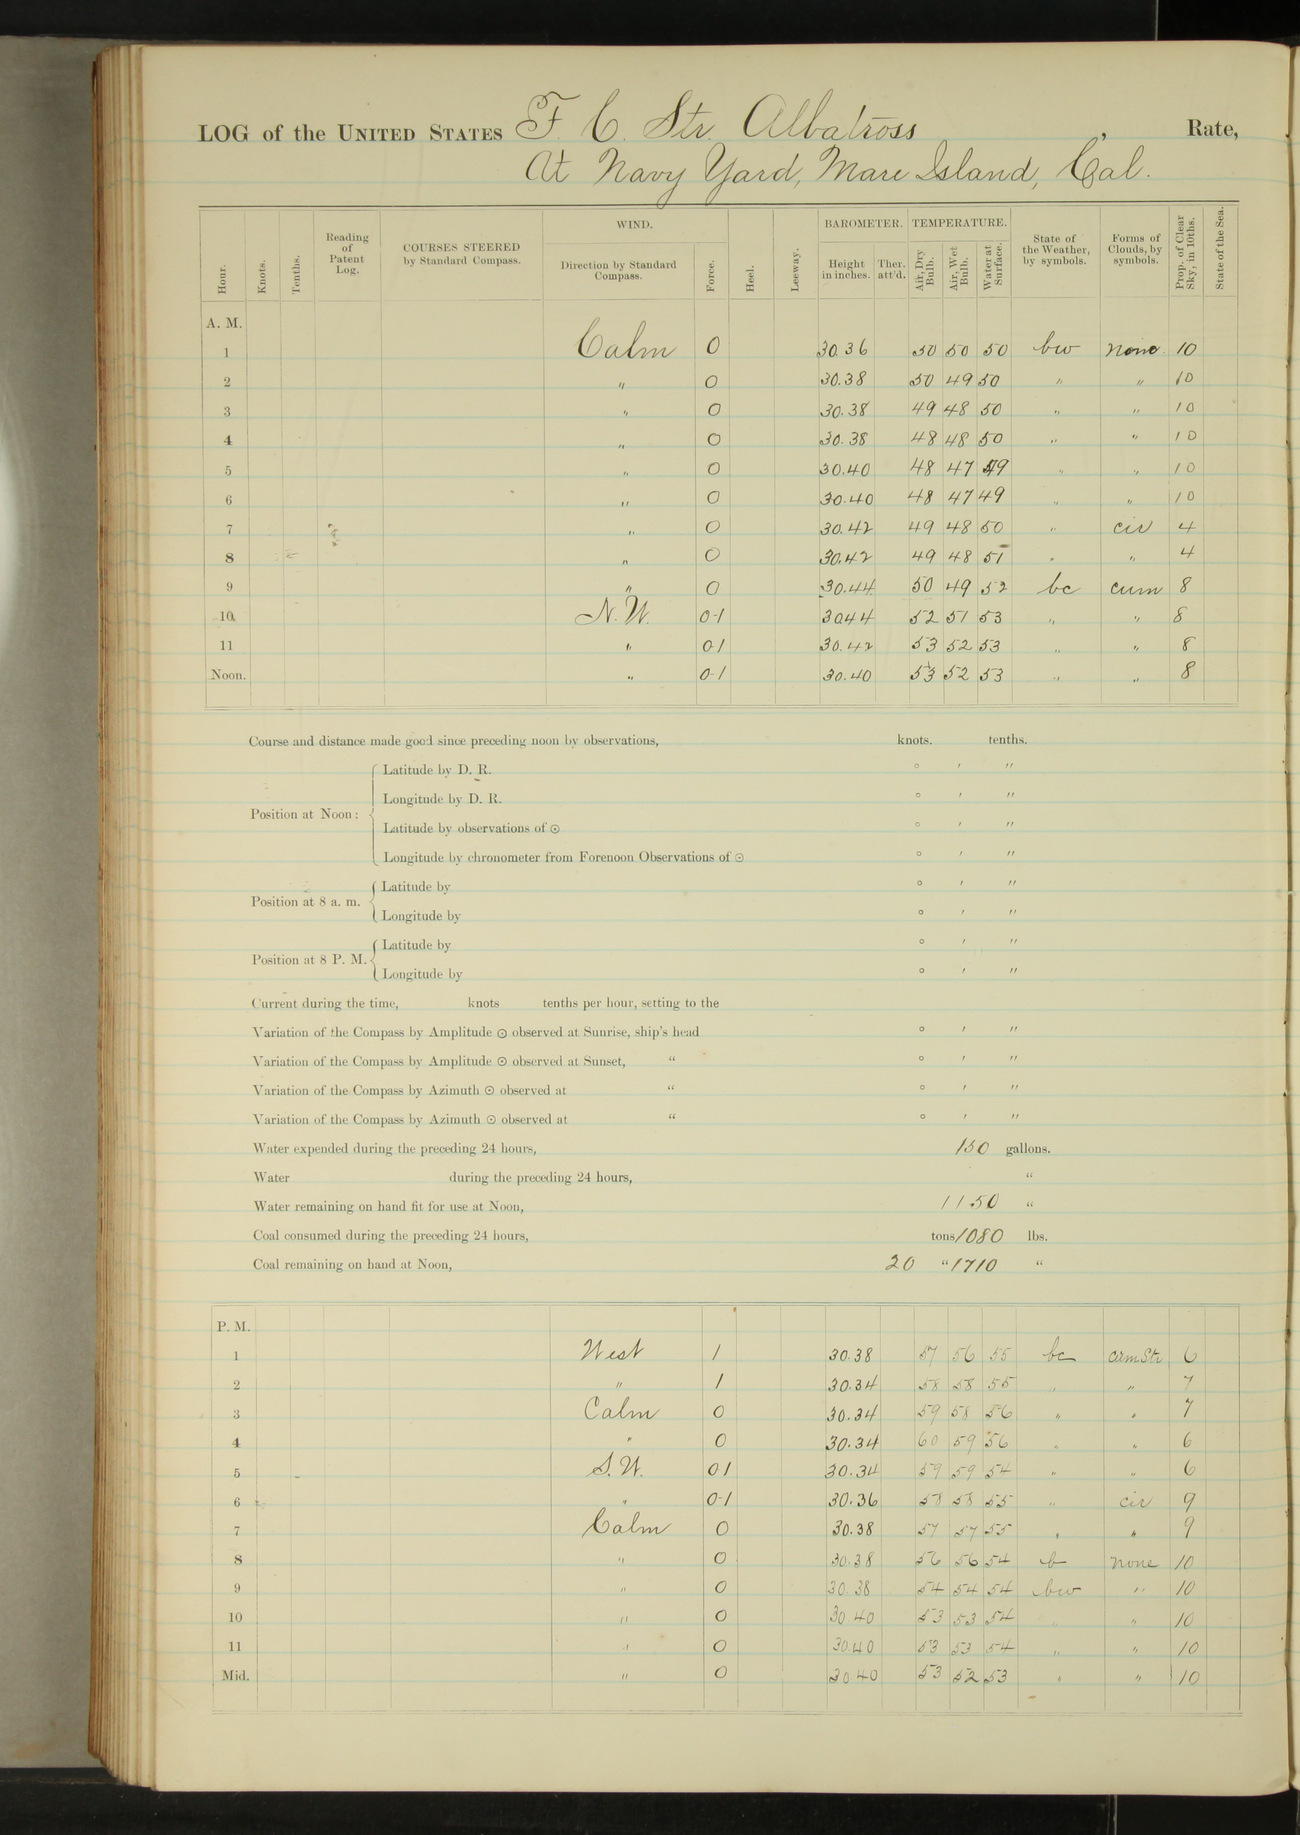 LOG of the UNITED STATES F. C. Str. Albatross, Rate,
At Navy Yard, Mare Island, Cal.
WIND. BAROMETER. TEMPERATURE.
Hour. Knots. Tenths. Reading of Patent Log. COURSES STEERED by Standard Compass. Direction by Standard Compass. Force. Heel. Leeway. Height in inches. Ther. att'd. Air, Dry Bulb. Air, Wet Bulb. Water at Surface. State of the Weather, by symbols. Forms of Clouds, by symbols. Prop. of Clear Sky, in 10ths. State of the Sea.
A. M.
1 Calm 0 30.36 50 50 50 bw none 10
2 " 0 30.38 50 49 50 " " 10
3 " 0 30.38 49 48 50 " " 10
4 " 0 30.38 48 48 50 " " 10
5 " 0 30.40 48 47 49 " " 10
6 " 0 30.40 48 47 49 " " 10
7 " 0 30.42 49 48 50 " cir 4
8 " 0 30.42 49 48 51 " " 4
9 " 0 30.44 50 49 52 bc cum 8
10 N.W. 0-1 30.44 52 51 53 " " 8
11 " 0-1 30.42 53 52 53 " " 8
Noon. " 0-1 30.40 53 52 53 " " 8
Course and distance made good since preceding noon by observations, knots. tenths.
Position at Noon: Latitude by D. R. ° ′ ″
Longitude by D. R. ° ′ ″
Latitude by observations of ☉ ° ′ ″
Longitude by chronometer from Forenoon Observations of ☉ ° ′ ″
Position at 8 a. m. Latitude by ° ′ ″
Longitude by ° ′ ″
Position at 8 P. M. Latitude by ° ′ ″
Longitude by ° ′ ″
Current during the time, knots tenths per hour, setting to the
Variation of the Compass by Amplitude ☉ observed at Sunrise, ship's head ° ′ ″
Variation of the Compass by Amplitude ☉ observed at Sunset, " ° ′ ″
Variation of the Compass by Azimuth ☉ observed at " ° ′ ″
Variation of the Compass by Azimuth ☉ observed at " ° ′ ″
Water expended during the preceding 24 hours, 150 gallons.
Water during the preceding 24 hours, "
Water remaining on hand fit for use at Noon, 1150 "
Coal consumed during the preceding 24 hours, tons 1080 lbs.
Coal remaining on hand at Noon, 20 " 1710 "
P. M.
1 West 1 30.38 57 56 55 bc cumStr 6
2 " 1 30.34 58 58 55 " " 7
3 Calm 0 30.34 59 58 56 " " 7
4 " 0 30.34 60 59 56 " " 6
5 S.W. 0 1 30.34 59 59 54 " " 6
6 " 0-1 30.36 58 58 55 " cir 9
7 Calm 0 30.38 57 57 55 " " 9
8 " 0 30.38 56 56 54 b none 10
9 " 0 30.38 54 54 54 bw " 10
10 " 0 30.40 53 53 54 " " 10
11 " 0 30.40 53 53 54 " " 10
Mid. " 0 30.40 53 52 53 " " 10